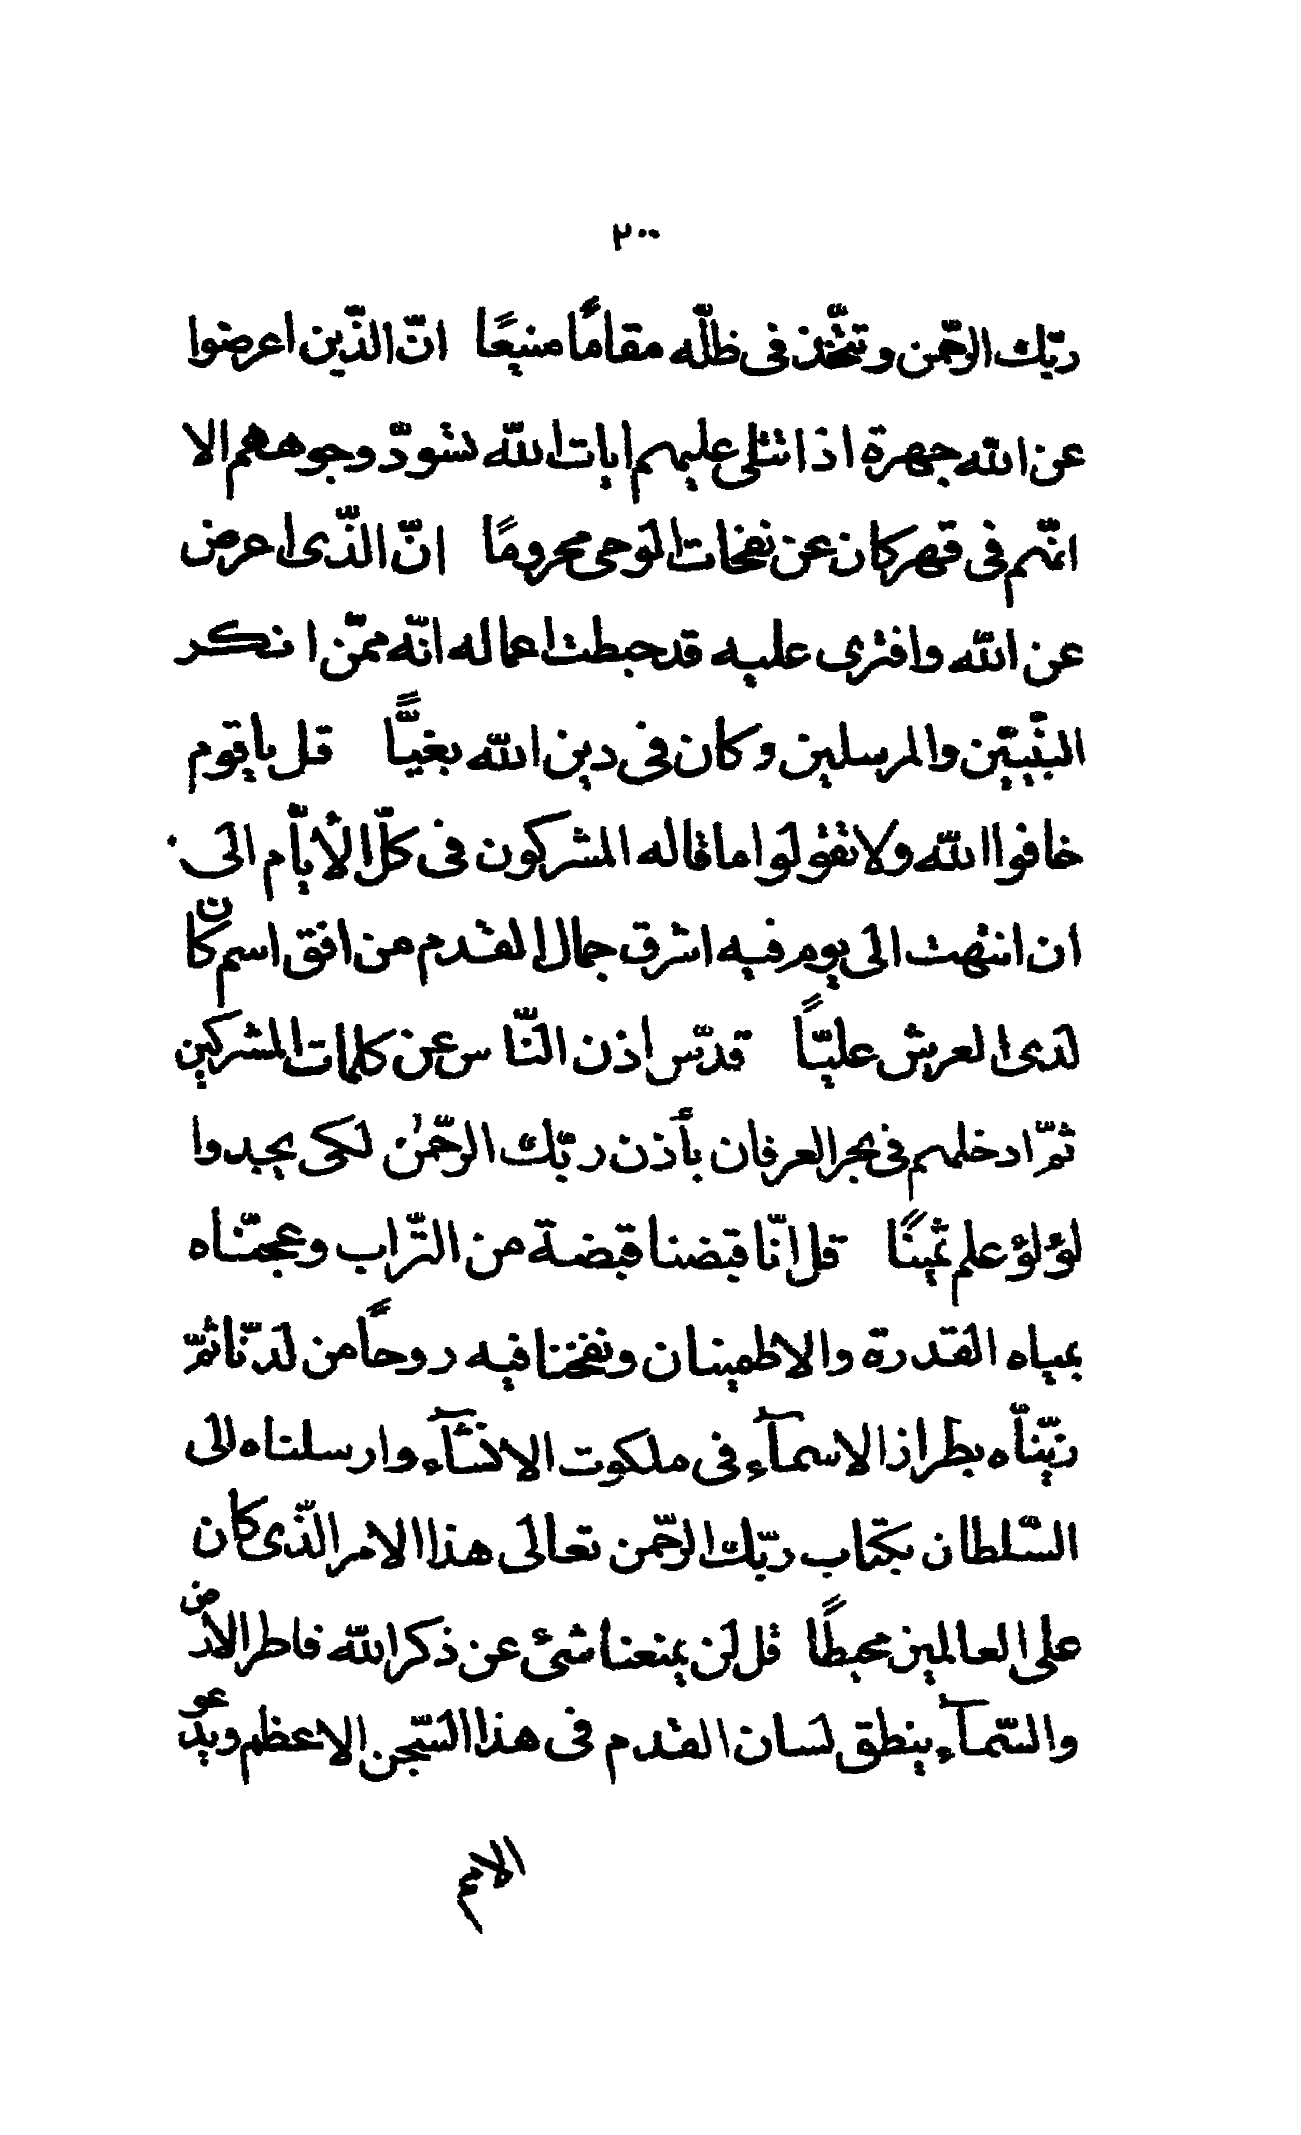 ٢٠٠
ربّك الرّحمن و تتّخذ فى ظلّه مقامًا منيعًا انّ الّذين اعرضوا
عن اللّه جهرة اذا تتلى عليهم ايات اللّه تسودّ وجوههم الا
انّهم فى قهر كان عن نفحات الوحى محرومًا انّ الّذى اعرض
عن اللّه وافترى عليه قد حبطت اعماله انّه ممّن انكر
النّبيّين والمرسلين و كان فى دين اللّه بغيًّا قل يا قوم
خافوا اللّه ولا تقولوا ما قاله المشركون فى كلّ الأيّام الى
ان انتهت الى يوم فيه اشرق جمال القدم من افق اسم كان
لدى العرش عليًّا قدّس اذن النّاس عن كلمات المشركين
ثمّ ادخلهم فى بحر العرفان بأذن ربّك الرّحمٰن لكى يجدوا
لؤلؤ علم ثمينًا قل انّا قبضنا قبضة من التّراب و عجنّاه
بمياه القدرة والاطمينان و نفخنا فيه روحًا من لدنّا ثمّ
زيّنّاه بطراز الاسمآء فى ملكوت الانشآء و ارسلناه الى
السّلطان بكتاب ربّك الرّحمن تعالى هذا الامر الّذى كان
على العالمين محيطًا قل لن يمنعنا شئ عن ذكر اللّه فاطر الارض
والسّمآء ينطق لسان القدم فى هذا السّجن الاعظم و يدعو
الامم